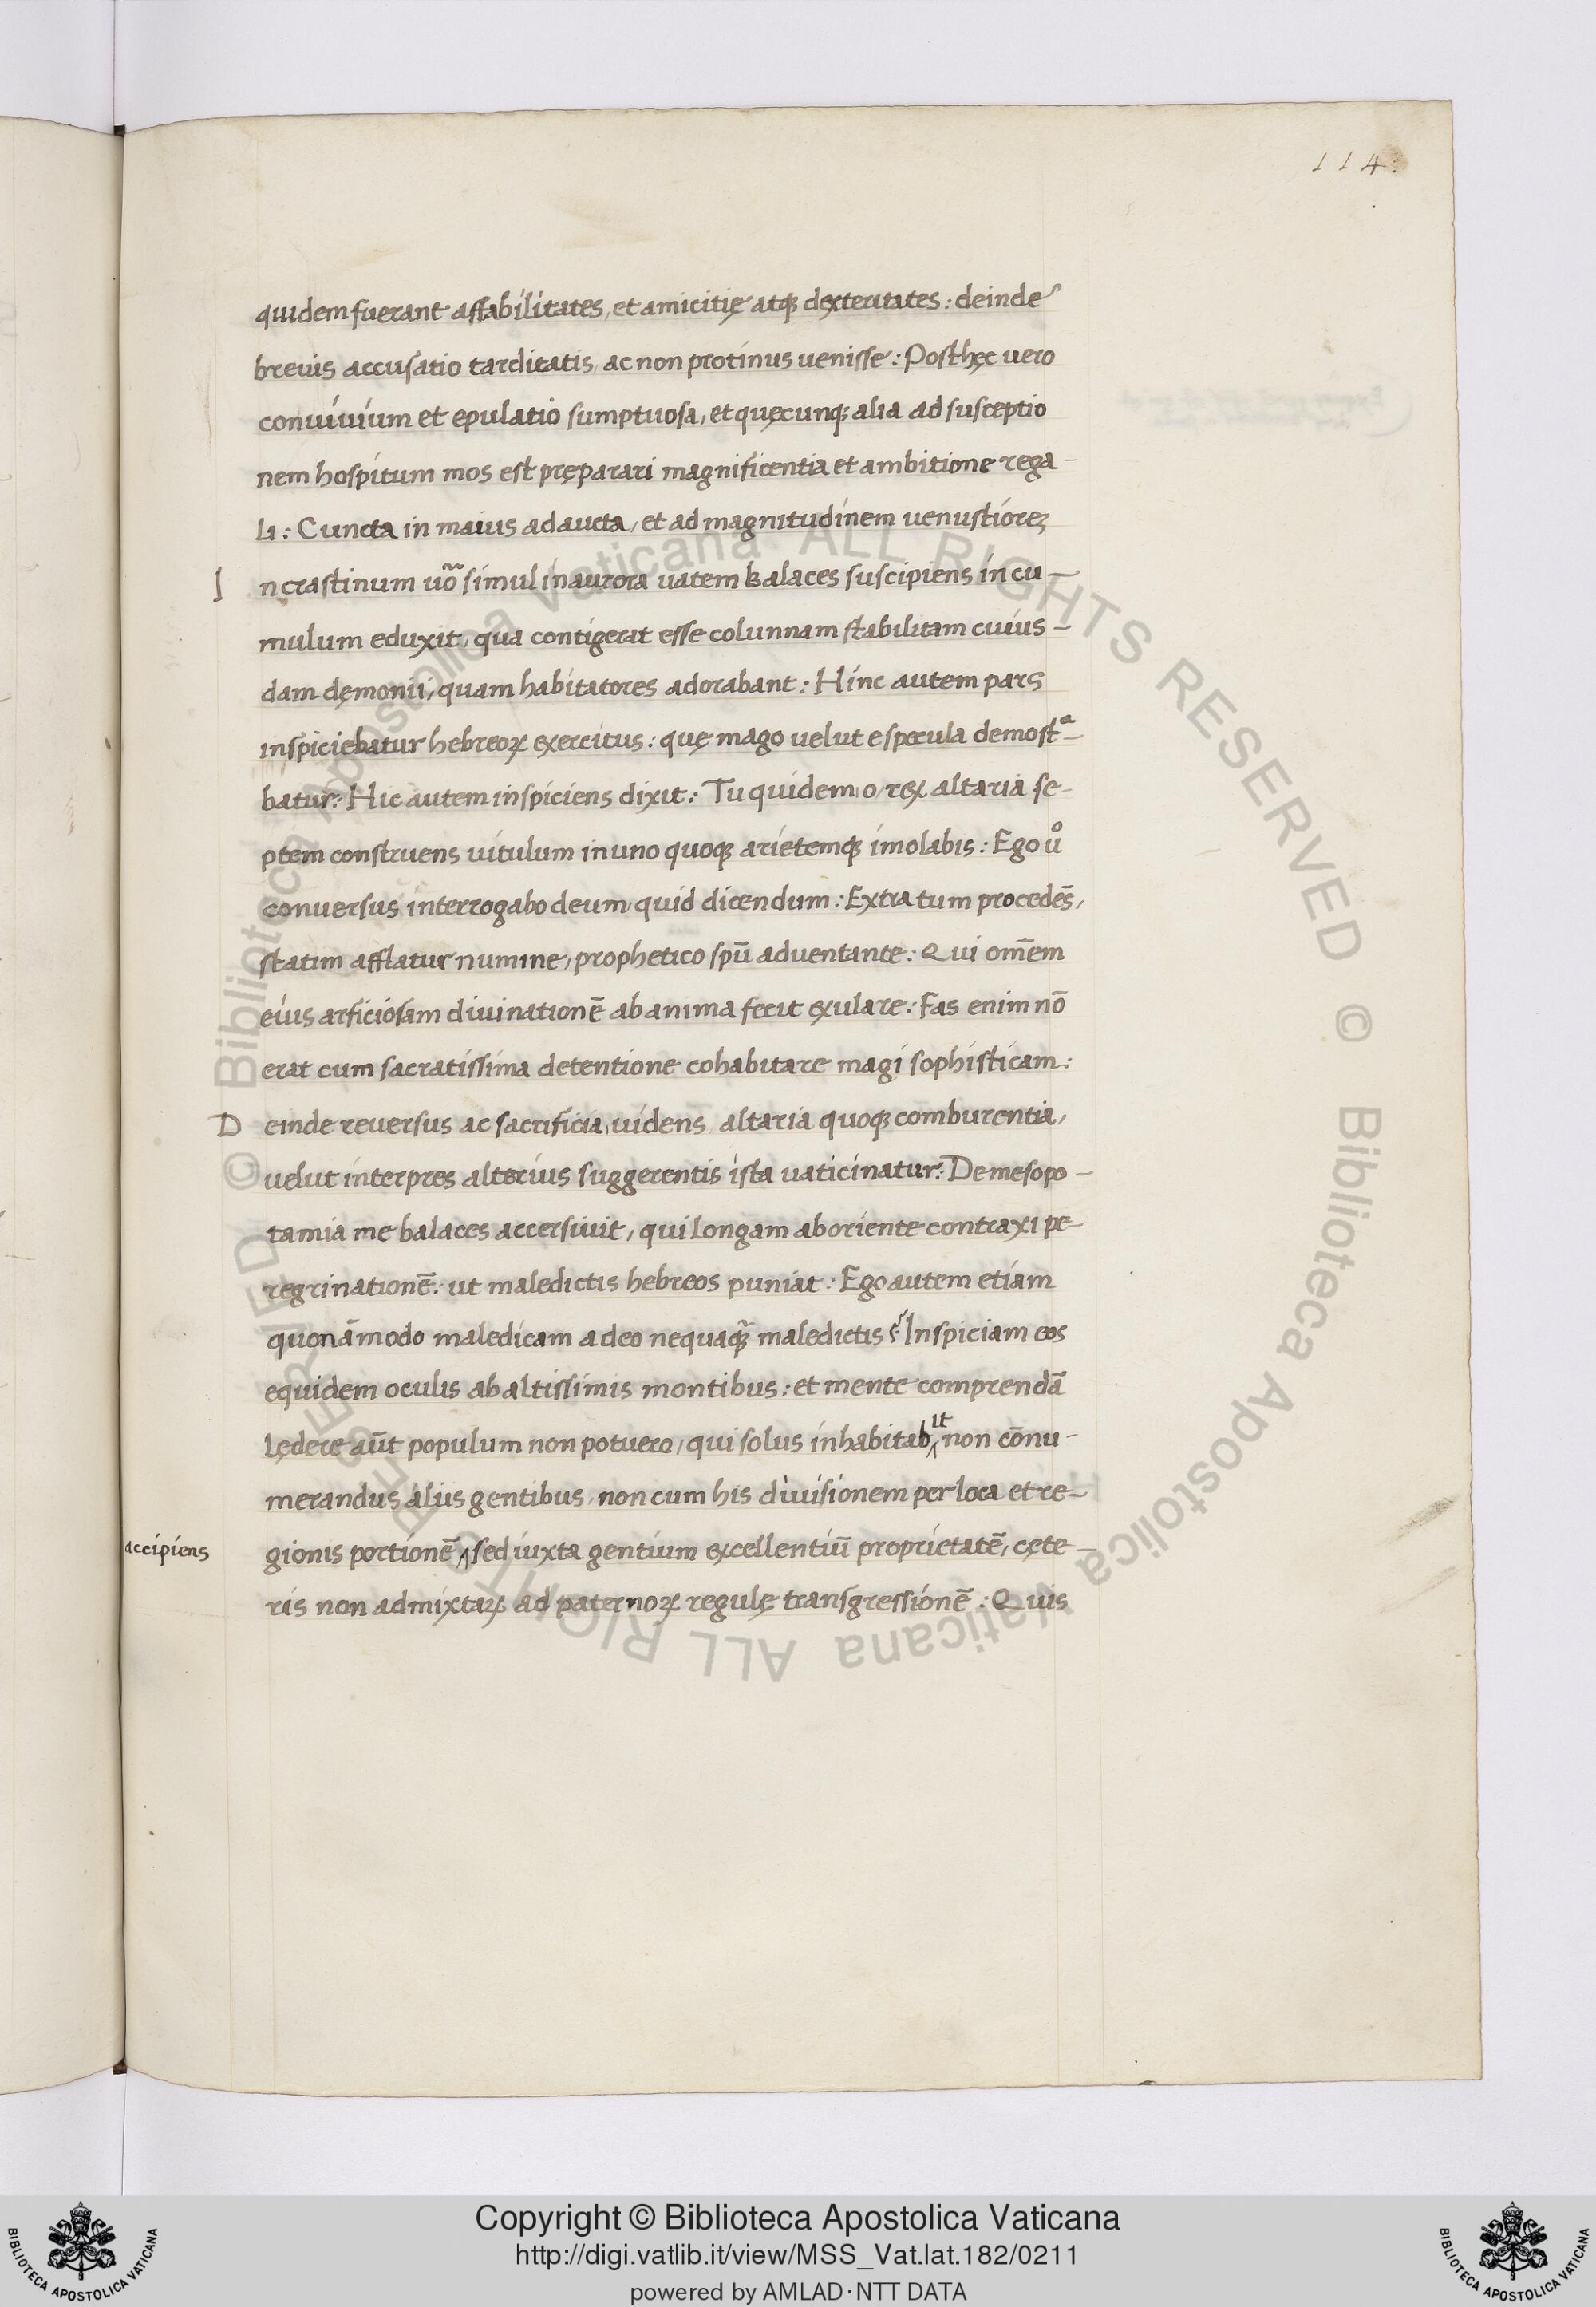 114.
quidem fuerant affabilitates, et amicitię atq; dexteritates : deinde
brevis accusatio tarditatis, ac non protinus uenisse : Posthęc uero
conuiuium et epulatio sumptuosa, et quęcunq; alia ad susceptio
nem hospitum mos est pręparari magnificentia et ambitione rega-
li : Cuncta in maius adaucta, et ad magnitudinem uenustiorez
In crastinum uõ simul in aurora uatem balaces suscipiens in cu-
mulum eduxit, qua contigerat esse colunnam stabilitam cuius-
dam dęmonii, quam habitatores adorabant : Hinc autem pars
inspiciebatur hebreoꝝ exercitus : quę mago uelut e specula demostᵃ-
batur : Hic autem inspiciens dixit : Tu quidem o rex altaria se-
ptem construens uitulum in uno quoq; arietemq; imolabis : Ego uͦ
conuersus interrogabo deum quid dicendum : Extra tum procedēs,
statim afflatur numine, prophetico spū aduentante : Qui om̄em
eius arficiosam diuinationē ab anima fecit exulare : Fas enim nō
erat cum sacratissima detentione cohabitare magi sophisticam :
Deinde reuersus ac sacrificia uidens altaria quoq; comburentia,
uelut interpres alterius suggerentis ista uaticinatur : De mesopo-
tamia me balaces accersiuit, qui longam ab oriente contraxi pe-
regrinationē : ut maledictis hebreos puniat : Ego autem etiam
quonāmodo maledicam a deo nequaq̃ maledictis ? Inspiciam eos
equidem oculis ab altissimis montibus : et mente comprendā
lędere aūt populum non potuero, qui solus inhabitab^it non cōnu-
merandus aliis gentibus, non cum his diuisionem per loca et re-
accipiens
gionis portionē ^ sed iuxta gentium excellentiū proprietatē, cęte-
ris non admixtaꝝ ad paternoꝝ regulę transgressionē : Quis
Copyright © Biblioteca Apostolica Vaticana
http://digi.vatlib.it/view/MSS_Vat.lat.182/0211
powered by AMLAD·NTT DATA
BIBLIOTECA APOSTOLICA VATICANA
BIBLIOTECA APOSTOLICA VATICANA
© Biblioteca Apostolica Vaticana ALL RIGHTS RESERVED © Biblioteca Apostolica Vaticana ALL RIGHTS RESERVED